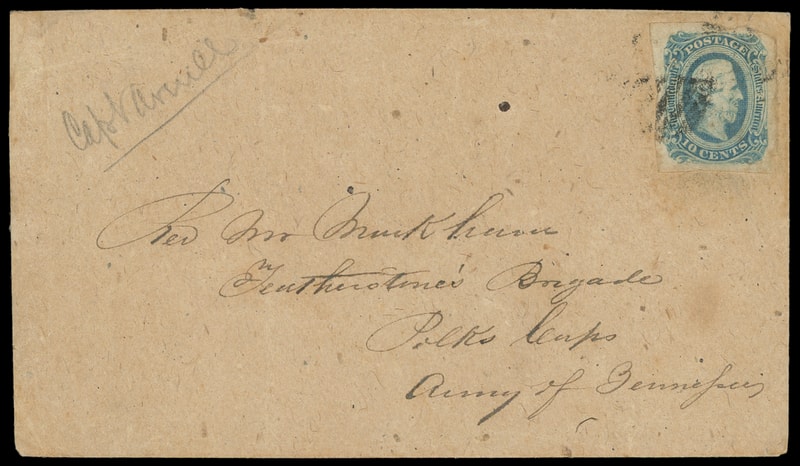 Capt
POSTAGE
The Confederate States of America
10 CENTS
Rev Mr Markham
Featherstone's Brigade
Polks Corps
Army of Tennessee